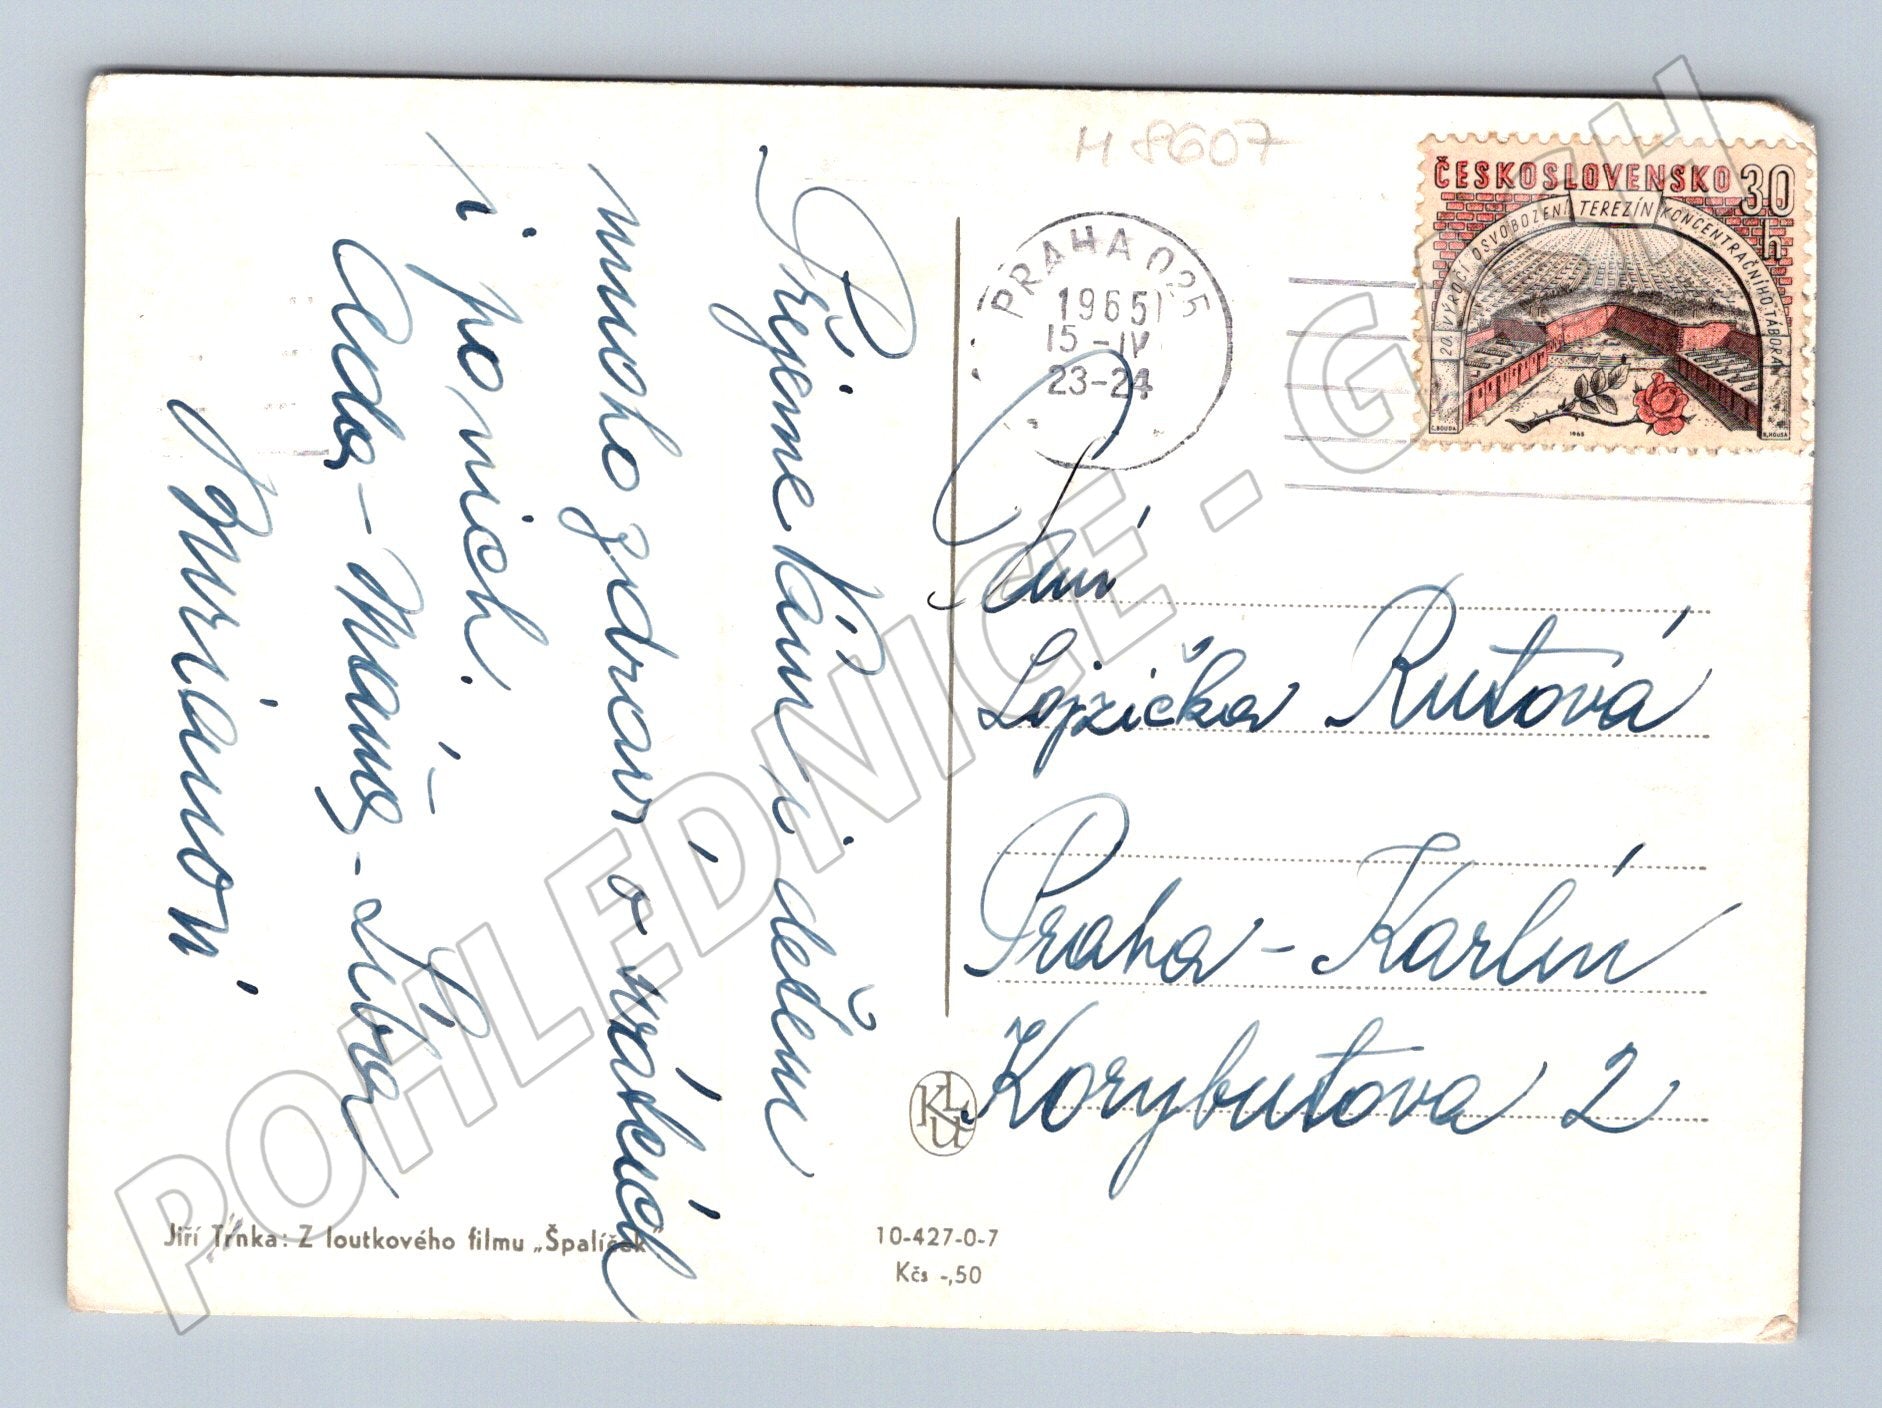 Přejeme Vám i dětem
mnoho zdraví o svátcích
i po nich.
Ada – Máňa – Liba
Burianovi
H 8607
PRAHA 025
1965
15 -IV
23-24
ČESKOSLOVENSKO 30 h
20. VÝROČÍ OSVOBOZENÍ TEREZÍN KONCENTRAČNÍHO TÁBORA
C. BOUDA 1965 B. HOUSA
Paní
Lojzička Rutová
Praha – Karlín
Korybutova 2
KLU
Jiří Trnka: Z loutkového filmu „Špalíček"
10-427-0-7
Kčs -,50
POHLEDNICE - G H